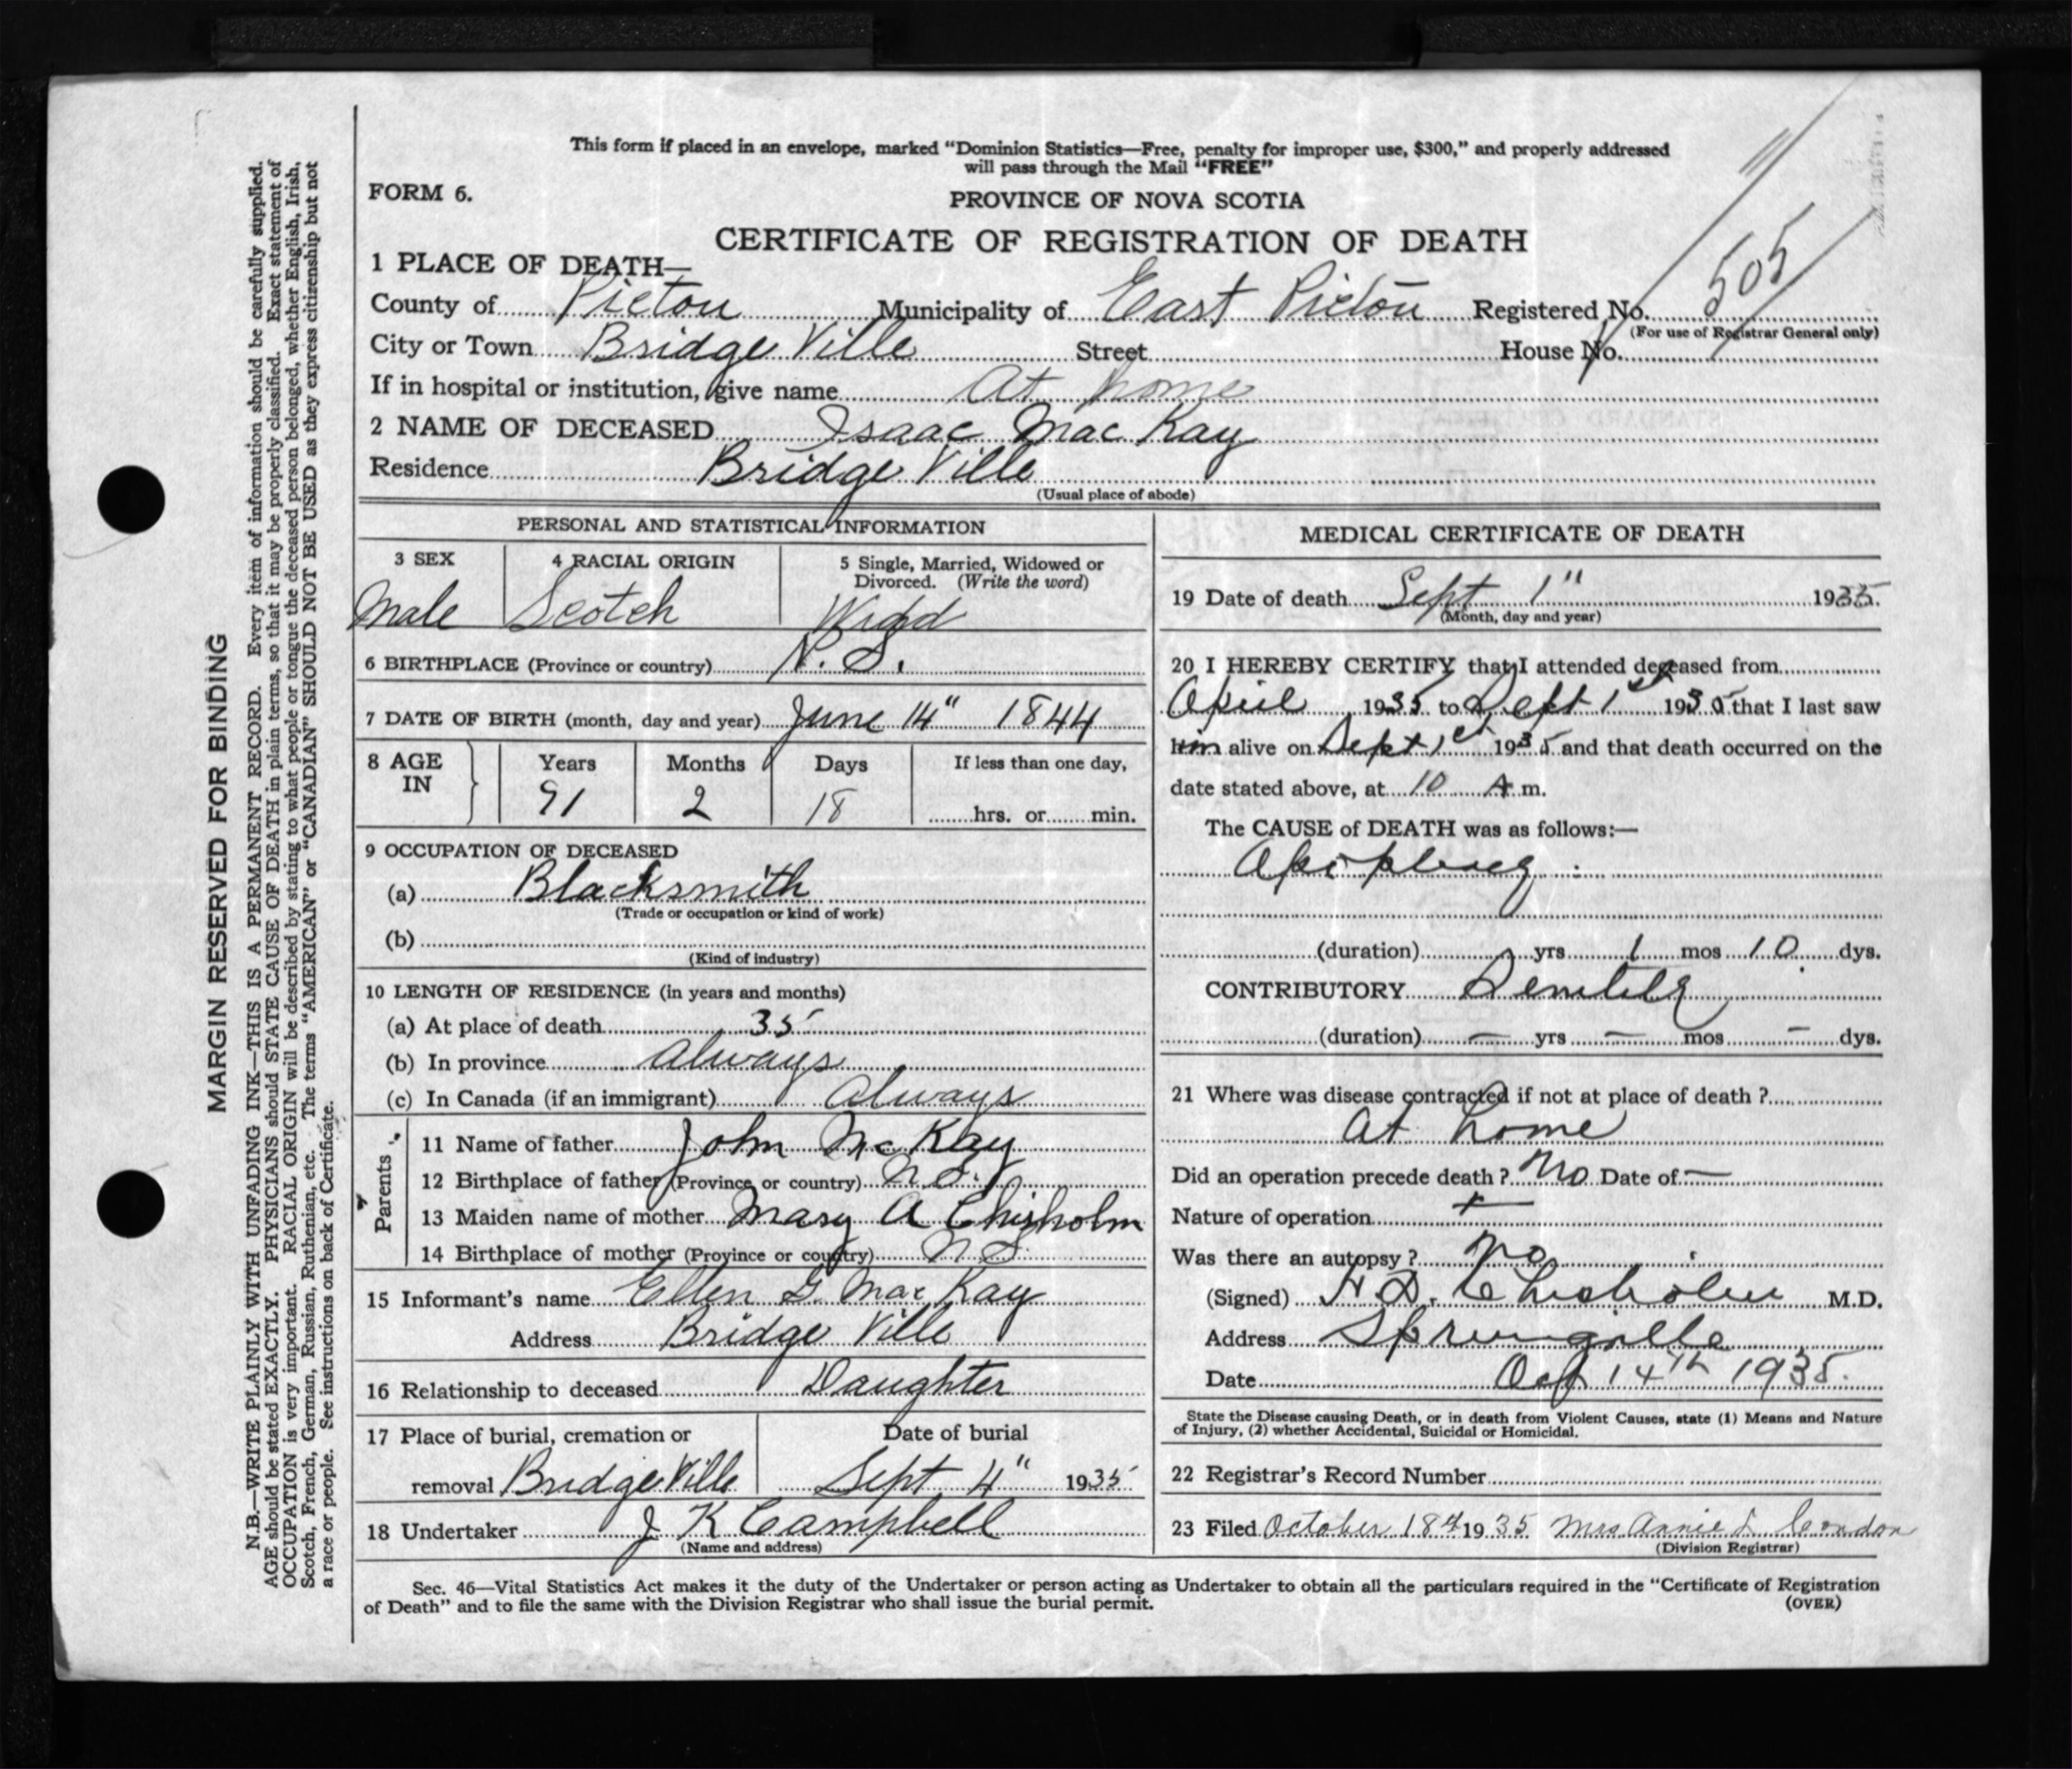 This form if placed in an envelope, marked "Dominion Statistics—Free, penalty for improper use, $300," and properly addressed
will pass through the Mail "FREE"
FORM 6.
PROVINCE OF NOVA SCOTIA
CERTIFICATE OF REGISTRATION OF DEATH
505
1 PLACE OF DEATH—
County of Pictou Municipality of East Pictou Registered No.
(For use of Registrar General only)
City or Town Bridge Ville Street House No.
If in hospital or institution, give name At home
2 NAME OF DECEASED Isaac Mac Kay
Residence Bridge Ville
(Usual place of abode)
PERSONAL AND STATISTICAL INFORMATION
3 SEX 4 RACIAL ORIGIN 5 Single, Married, Widowed or
Divorced. (Write the word)
Male Scotch Widd
6 BIRTHPLACE (Province or country) N. S.
7 DATE OF BIRTH (month, day and year) June 14" 1844
8 AGE IN Years Months Days If less than one day,
91 2 18 hrs. or min.
9 OCCUPATION OF DECEASED
(a) Blacksmith
(Trade or occupation or kind of work)
(b)
(Kind of industry)
10 LENGTH OF RESIDENCE (in years and months)
(a) At place of death 35
(b) In province always
(c) In Canada (if an immigrant) always
Parents
11 Name of father John McKay
12 Birthplace of father (Province or country) N S.
13 Maiden name of mother Mary A Chisholm
14 Birthplace of mother (Province or country) N S.
15 Informant's name Ellen G. MacKay
Address Bridge Ville
16 Relationship to deceased Daughter
17 Place of burial, cremation or Date of burial
removal Bridge Ville Sept 4" 1935
18 Undertaker J K Campbell
(Name and address)
MEDICAL CERTIFICATE OF DEATH
19 Date of death Sept 1" 1935.
(Month, day and year)
20 I HEREBY CERTIFY that I attended deceased from
April 1935 to Sept 1st 1935 that I last saw
him alive on Sept 1st 1935 and that death occurred on the
date stated above, at 10 A m.
The CAUSE of DEATH was as follows:—
Apoplexy
(duration) yrs 1 mos 10 dys.
CONTRIBUTORY Senility
(duration) — yrs — mos — dys.
21 Where was disease contracted if not at place of death ?
at home
Did an operation precede death ? No Date of —
Nature of operation
Was there an autopsy ? No
(Signed) H. D. Chisholm M.D.
Address Springville
Date Oct 14th 1935.
State the Disease causing Death, or in death from Violent Causes, state (1) Means and Nature
of Injury, (2) whether Accidental, Suicidal or Homicidal.
22 Registrar's Record Number
23 Filed October 18th 1935 Mrs Annie L. Condon
(Division Registrar)
Sec. 46—Vital Statistics Act makes it the duty of the Undertaker or person acting as Undertaker to obtain all the particulars required in the "Certificate of Registration
of Death" and to file the same with the Division Registrar who shall issue the burial permit.
(OVER)
MARGIN RESERVED FOR BINDING
N.B.—WRITE PLAINLY WITH UNFADING INK—THIS IS A PERMANENT RECORD. Every item of information should be carefully supplied.
AGE should be stated EXACTLY. PHYSICIANS should STATE CAUSE OF DEATH in plain terms, so that it may be properly classified. Exact statement of
OCCUPATION is very important. RACIAL ORIGIN will be described by stating to what people or tongue the deceased person belonged, whether English, Irish,
Scotch, French, German, Russian, Ruthenian, etc. The terms "AMERICAN" or "CANADIAN" SHOULD NOT BE USED as they express citizenship but not
a race or people. See instructions on back of Certificate.